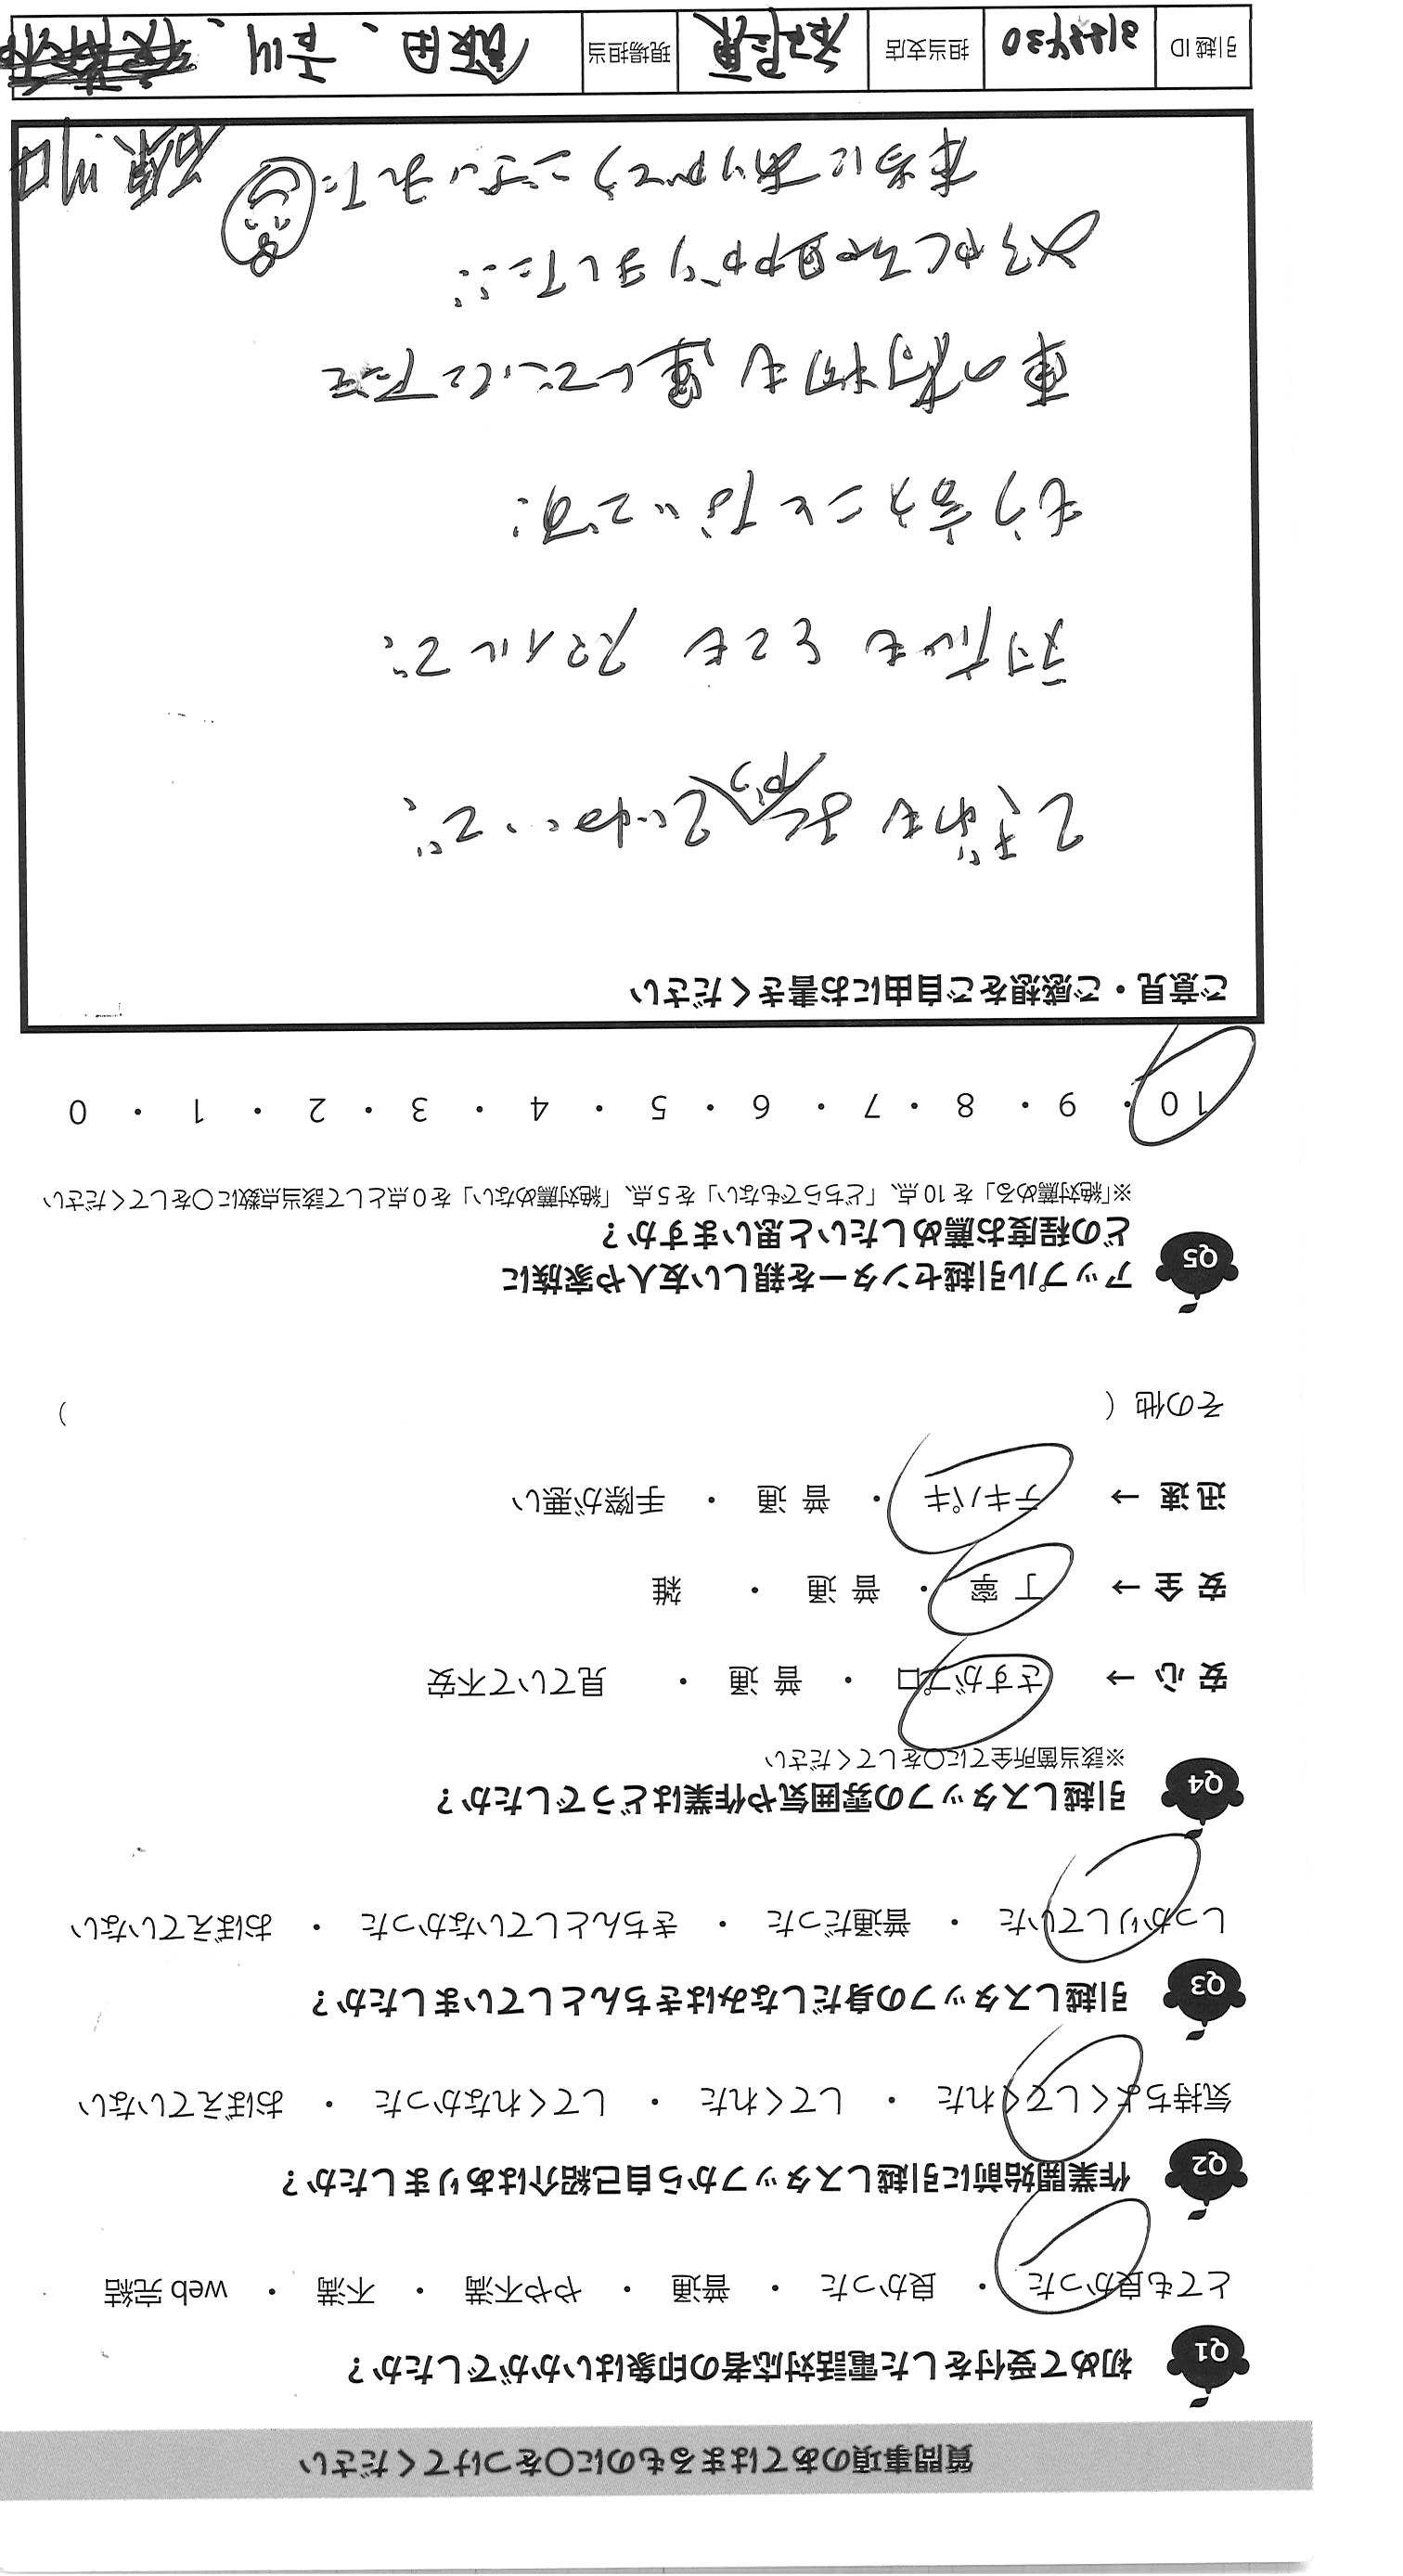 質問事項のあてはまるものに○をつけてください
Q1 初めて受付をした電話対応者の印象はいかがでしたか？
とても良かった ・ 良かった ・ 普通 ・ やや不満 ・ 不満 ・ web 完結
Q2 作業開始前に引越しスタッフから自己紹介はありましたか？
気持ちよくしてくれた ・ してくれた ・ してくれなかった ・ おぼえていない
Q3 引越しスタッフの身だしなみはきちんとしていましたか？
しっかりしていた ・ 普通だった ・ きちんとしていなかった ・ おぼえていない
Q4 引越しスタッフの雰囲気や作業はどうでしたか？
※該当箇所全てに○をしてください
安心 → さすがプロ ・ 普通 ・ 見ていて不安
安全 → 丁寧 ・ 普通 ・ 雑
迅速 → テキパキ ・ 普通 ・ 手際が悪い
その他 （ ）
Q5 アップル引越センターを親しい友人や家族に
どの程度お薦めしたいと思いますか？
※「絶対薦める」を 10 点、「どちらでもない」を 5 点、「絶対薦めない」を 0 点として該当点数に○をしてください
10 ・ 9 ・ 8 ・ 7 ・ 6 ・ 5 ・ 4 ・ 3 ・ 2 ・ 1 ・ 0
ご意見・ご感想をご自由にお書きください
ていねいで、
対応もとてもスマイルで、
もう言うことないです!
車の荷物も運んでいただて
ました!!
本当にありがとうございました
引越 ID 担当支店 現場担当 飯田、吉川、